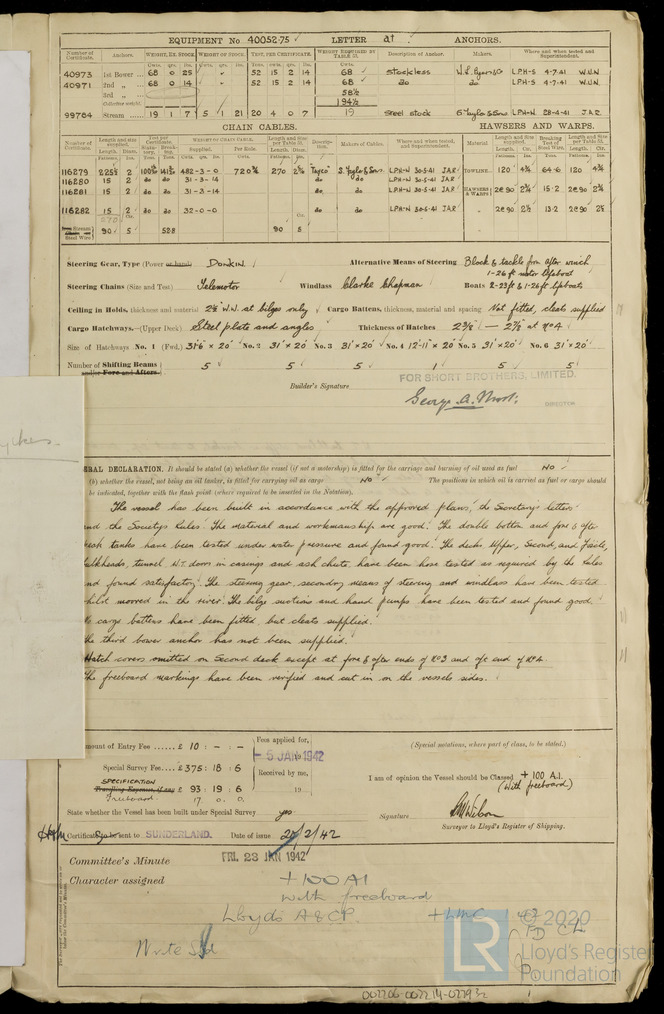 EQUIPMENT No 40052.75 LETTER at ANCHORS.
Number of Certificate. Anchors. WEIGHT, EX. STOCK WEIGHT OF STOCK. TEST, PER CERTIFICATE. WEIGHT REQUIRED BY TABLE 31. Description of Anchor. Makers. Where and when tested and Superintendent.
40973 1st Bower ... 68 0 25 52 15 2 14 68 stockless LPH-S 4-7-41 W.W.N
40971 2nd „ ... 68 0 14 52 15 2 14 68 do do LPH-S 4-7-41 W.W.N.
3rd „ ... 58½
Collective weight. 194½
99764 Stream ...... 19 1 7 5 1 21 20 4 0 7 19 Steel stock LPH-N 28-4-41 JAR
CHAIN CABLES. HAWSERS AND WARPS.
Number of Certificate. Length and size supplied. Test per Certificate. WEIGHT OF CHAIN CABLE. Length and Size per Table 31. Description. Makers of Cables. Where and when tested, and Superintendent. Material Length and Size supplied. Breaking Test of Steel Wire. Length and Size per Table 31.
116279 482-3-0 720¾ 270 Tayco LPH-N 30-5-41 JAR TOWLINE 120 64.6 120
116280 15 2 do do 31-3-14 do LPH-N 30-5-41 JAR
116281 15 2 do do 31-3-14 HAWSERS & WARPS 2@90 15.2 2@90
116282 15 2 do do 32-0-0 do do LPH-N 30-5-41 JAR „ 2@90 13.2 2@90
Steel Wire 90 5 52.8 90 5
Steering Gear, Type (Power or hand) DONKIN. Alternative Means of Steering Block & tackle from after winch
Steering Chains (Size and Test) Telemotor Windlass Clarke Chapman Boats 1-26 ft motor lifeboat
2-23ft & 1-26ft lifeboats
Ceiling in Holds, thickness and material 2½" W.W. at bilges only Cargo Battens, thickness, material and spacing Not fitted, cleats supplied
Cargo Hatchways.—(Upper Deck) Steel plate and angles Thickness of Hatches 2⅜" — 2⅞" at No4
Size of Hatchways No. 1 (Fwd.) 31'6" × 20' No. 2 31' × 20' No. 3 31' × 20' No. 4 12'-11" × 20' No. 5 31' × 20' No. 6 31' × 20'
Number of Shifting Beams 5 5 5 1 5 5
and/or Fore and Afters
Builder's Signature FOR SHORT BROTHERS, LIMITED.
DIRECTOR
ERAL DECLARATION. It should be stated (a) whether the vessel (if not a motorship) is fitted for the carriage and burning of oil used as fuel NO
(b) whether the vessel, not being an oil tanker, is fitted for carrying oil as cargo NO The positions in which oil is carried as fuel or cargo should
be indicated, together with the flash point (where required to be inserted in the Notation).
The vessel has been built in accordance with the approved plans, the Secretary's letters
and the Society's Rules. The material and workmanship are good. The double bottom and fore & after
peak tanks have been tested under water pressure and found good. The decks Upper, Second, and F'cstle,
bulkheads, tunnel W.T. doors in casings and ash chute, have been hose tested as required by the Rules
and found satisfactory. The steering gear, secondary means of steering and windlass have been tested
whilst moored in the river. The bilge suctions and hand pumps have been tested and found good.
No cargo battens have been fitted but cleats supplied.
The third bower anchor has not been supplied.
Hatch covers omitted on Second deck except at fore & after ends of No3 and aft end of No4.
The freeboard markings have been verified and cut in on the vessels sides.
mount of Entry Fee ...... £ 10 : - : - Fees applied for, (Special notations, where part of class, to be stated.)
5 JAN 1942
Special Survey Fee ... £375 : 18 : 6
SPECIFICATION Received by me,
Travelling Expenses, if any £ 93 : 19 : 6 19 I am of opinion the Vessel should be Classed +100 A.1.
(with freeboard)
Freeboard 17. 0. 0.
State whether the Vessel has been built under Special Survey yes Signature
Surveyor to Lloyd's Register of Shipping.
Certificate to be sent to SUNDERLAND. Date of issue 20/2/42
Committee's Minute FRI. 23 JAN 1942
Character assigned +100 A1
with freeboard
Lloyd's A&CP. +LMC
Write Sld
© 2020
LR
Lloyd's Register
Foundation
002206-002214-0293